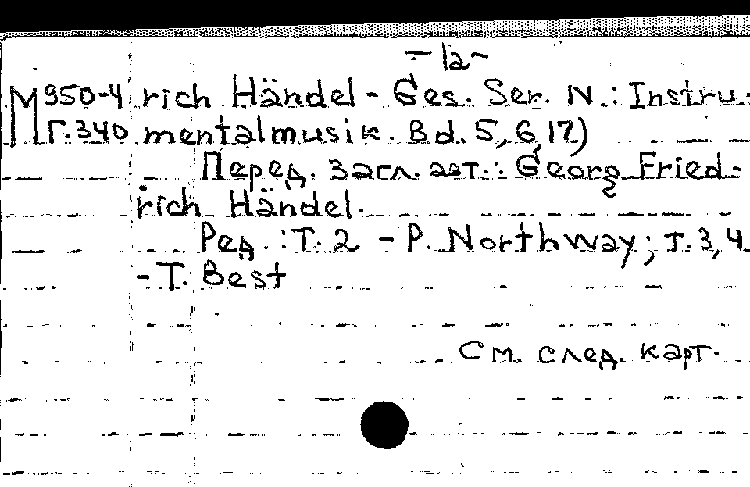 - 1a -
М 950-4 rich Händel - Ges. Ser. N.: Instru-
Г.340 mentalmusik. Bd. 5, 6, 17)
Перед. загл. авт.: Georg Fried-
rich Händel.
Ред.: Т. 2 - P. Northway; т. 3, 4
- T. Best
См. след. карт.